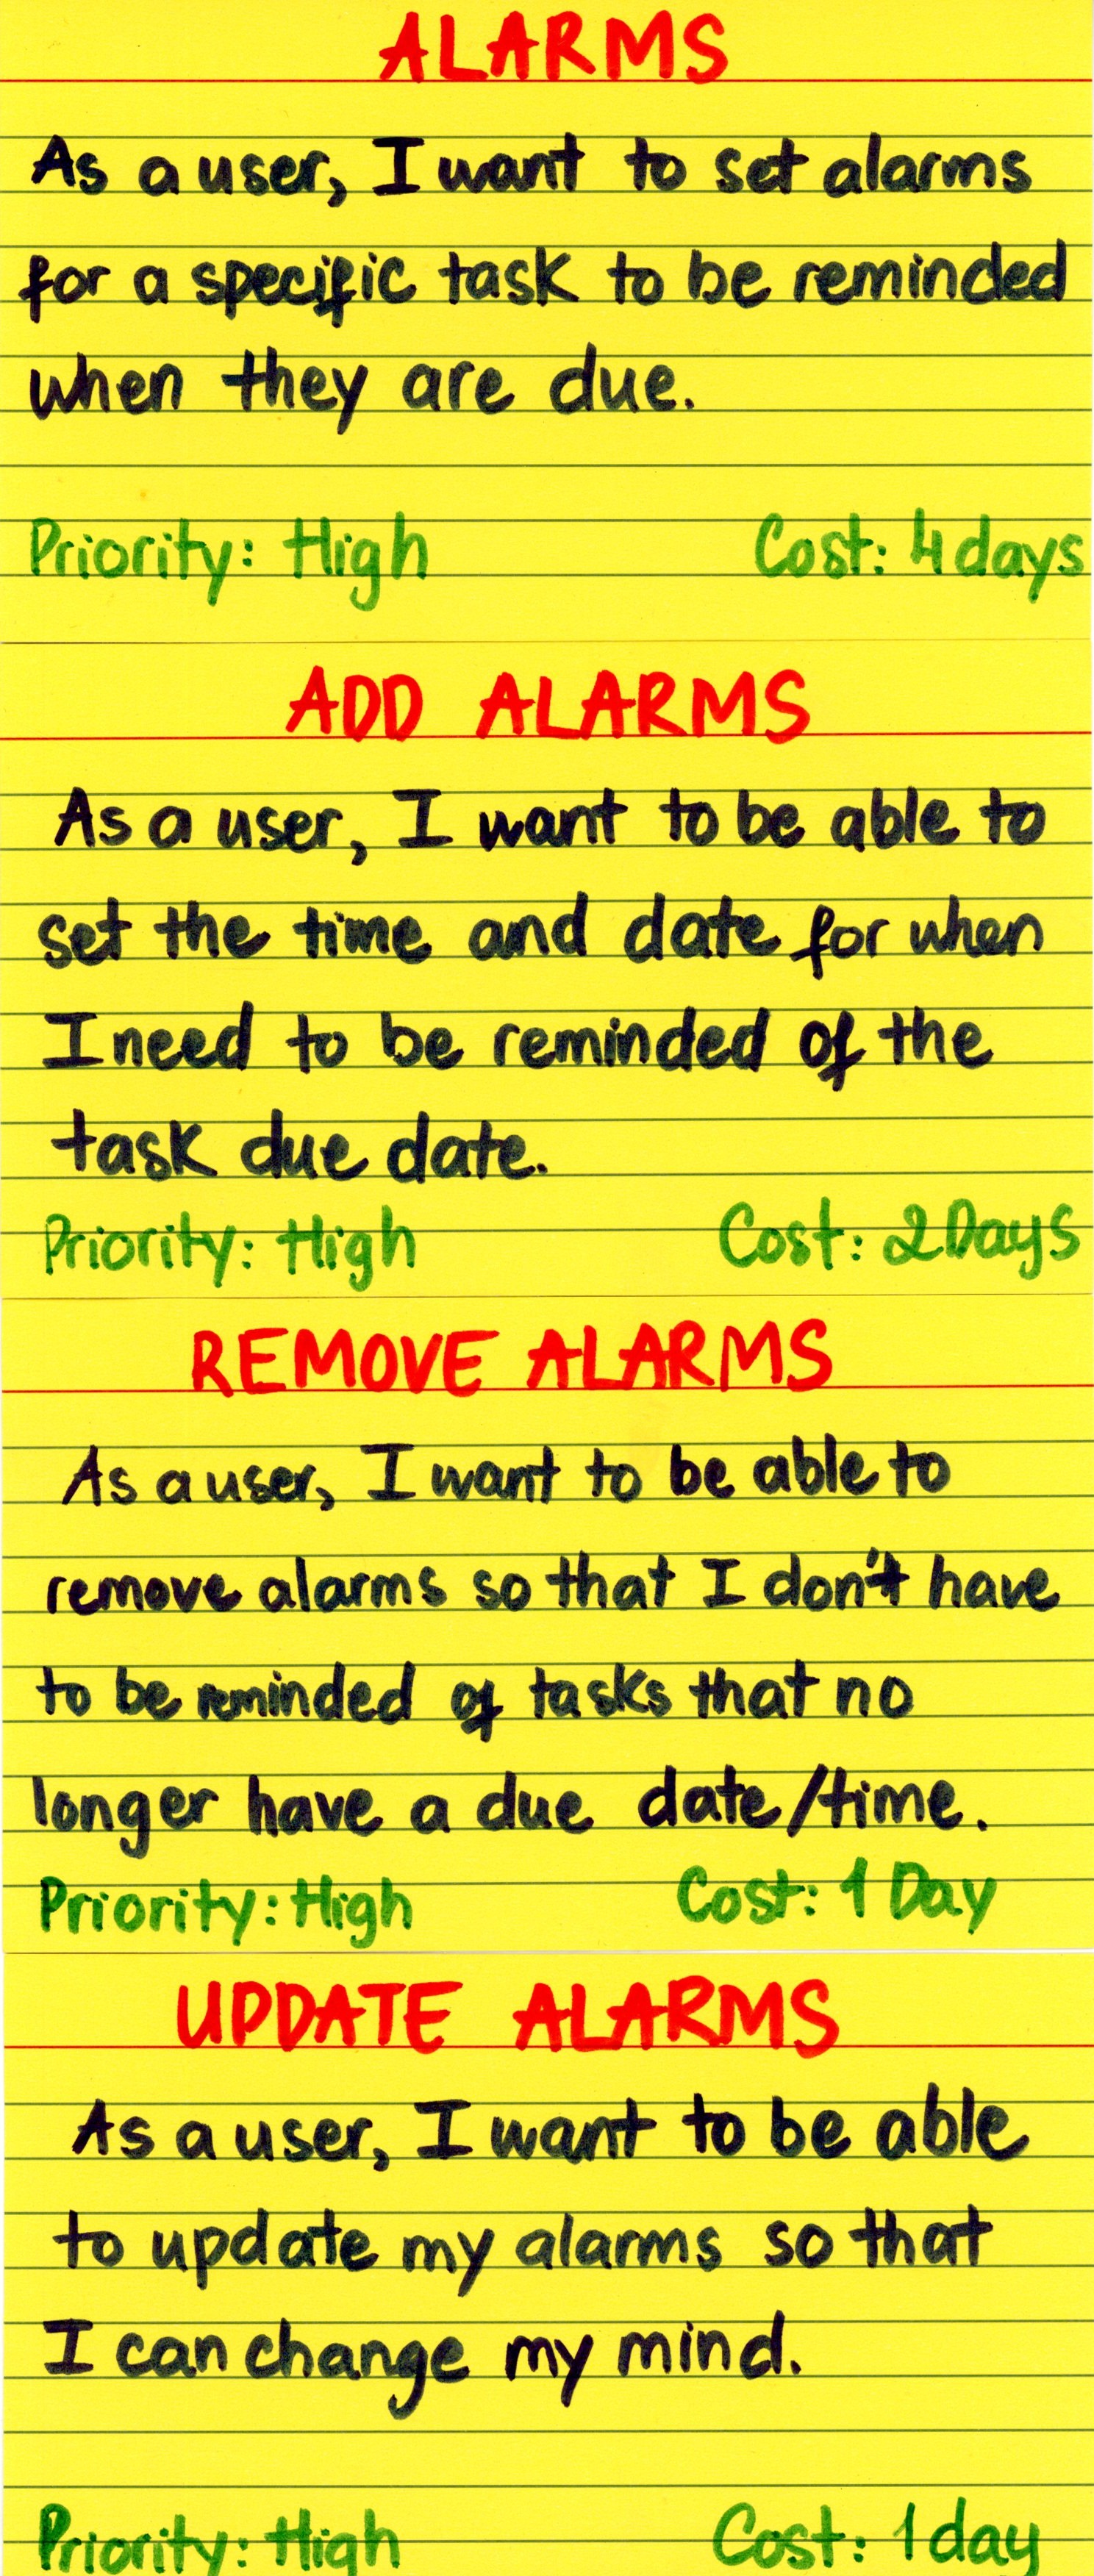 ALARMS
As a user, I want to set alarms
for a specific task to be reminded
when they are due.
Priority: High Cost: 4 days
ADD ALARMS
As a user, I want to be able to
set the time and date for when
I need to be reminded of the
task due date.
Priority: High Cost: 2 Days
REMOVE ALARMS
As a user, I want to be able to
remove alarms so that I don't have
to be reminded of tasks that no
longer have a due date/time.
Priority: High Cost: 1 Day
UPDATE ALARMS
As a user, I want to be able
to update my alarms so that
I can change my mind.
Priority: High Cost: 1 day